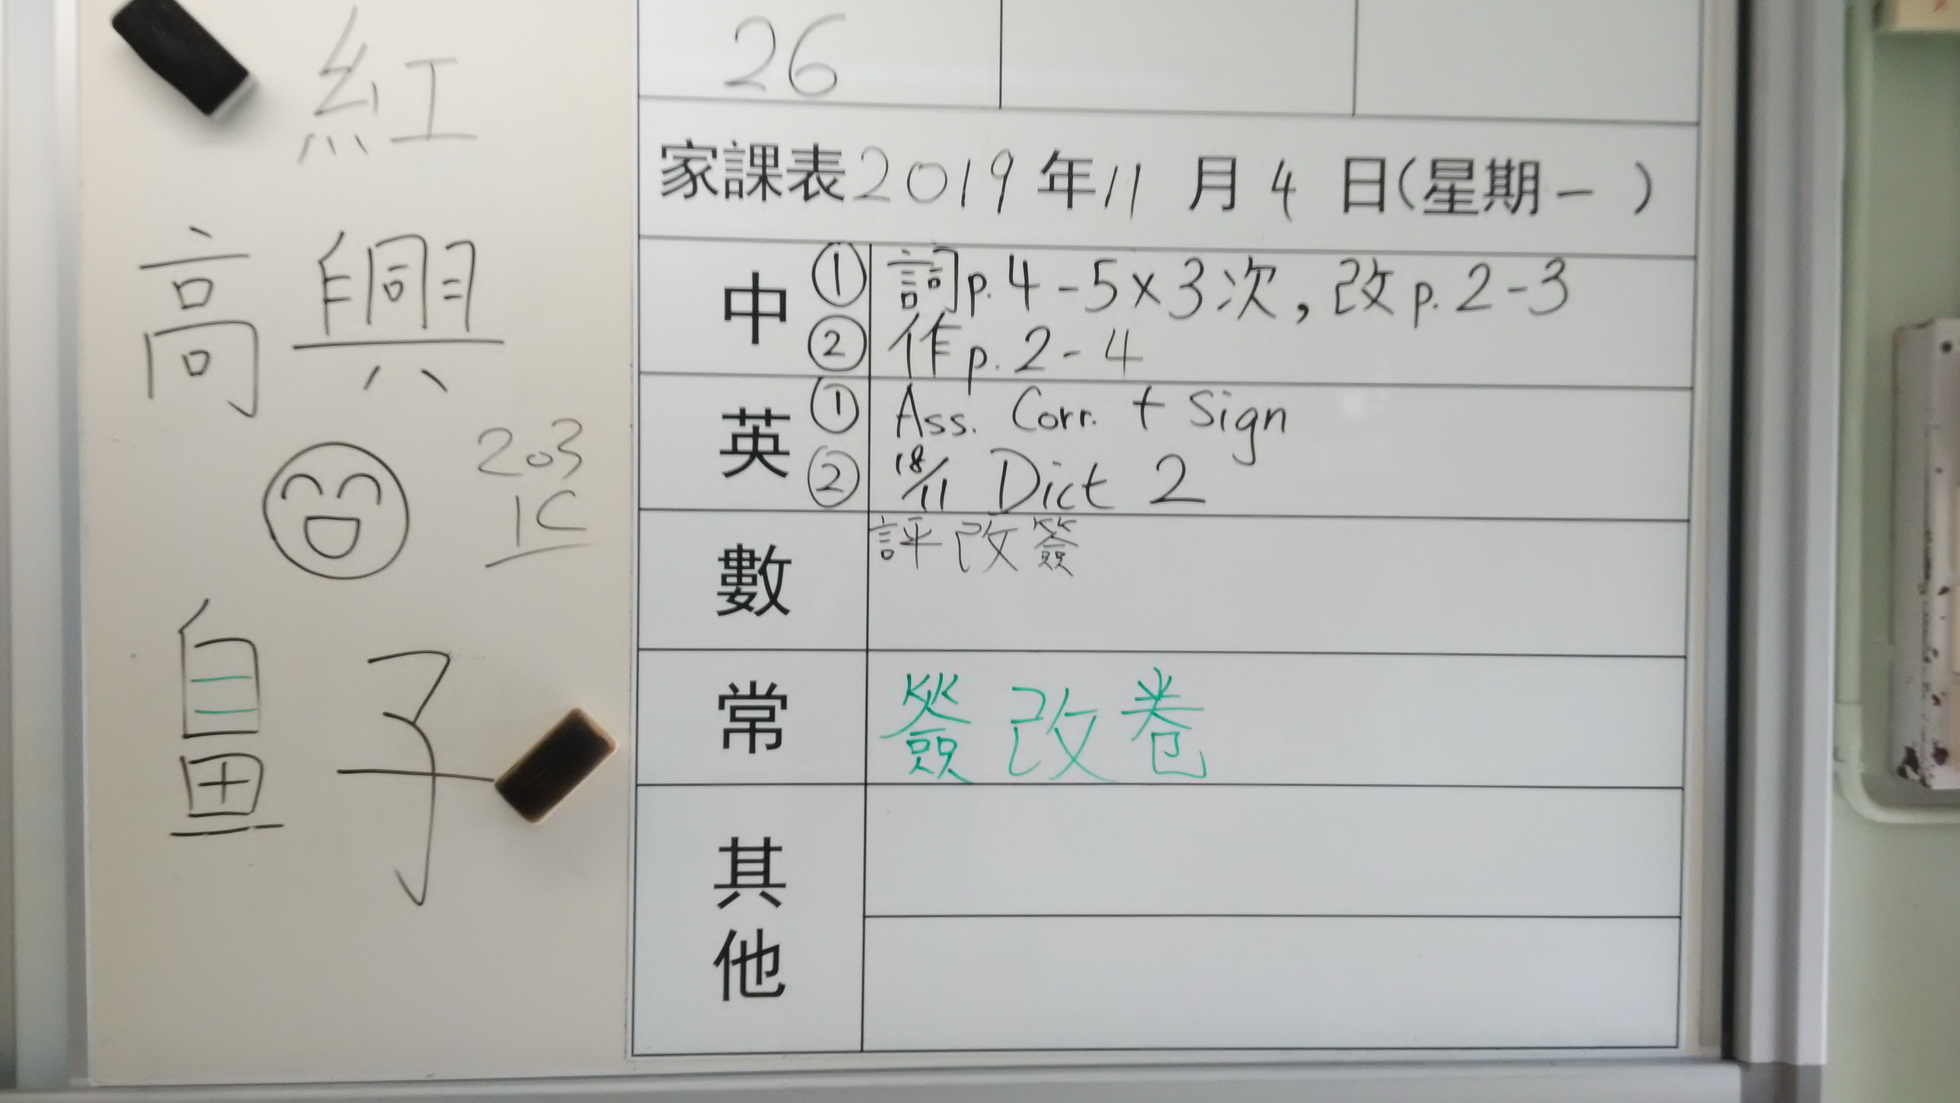 紅
高興
203
1C
子
26
家課表 2019年11月4日(星期一)
中 ① 詞p.4-5×3次,改p.2-3
② 作p.2-4
英 ① Ass. Corr. + Sign
② 18/11 Dict 2
數 評改簽
常 簽改卷
其他